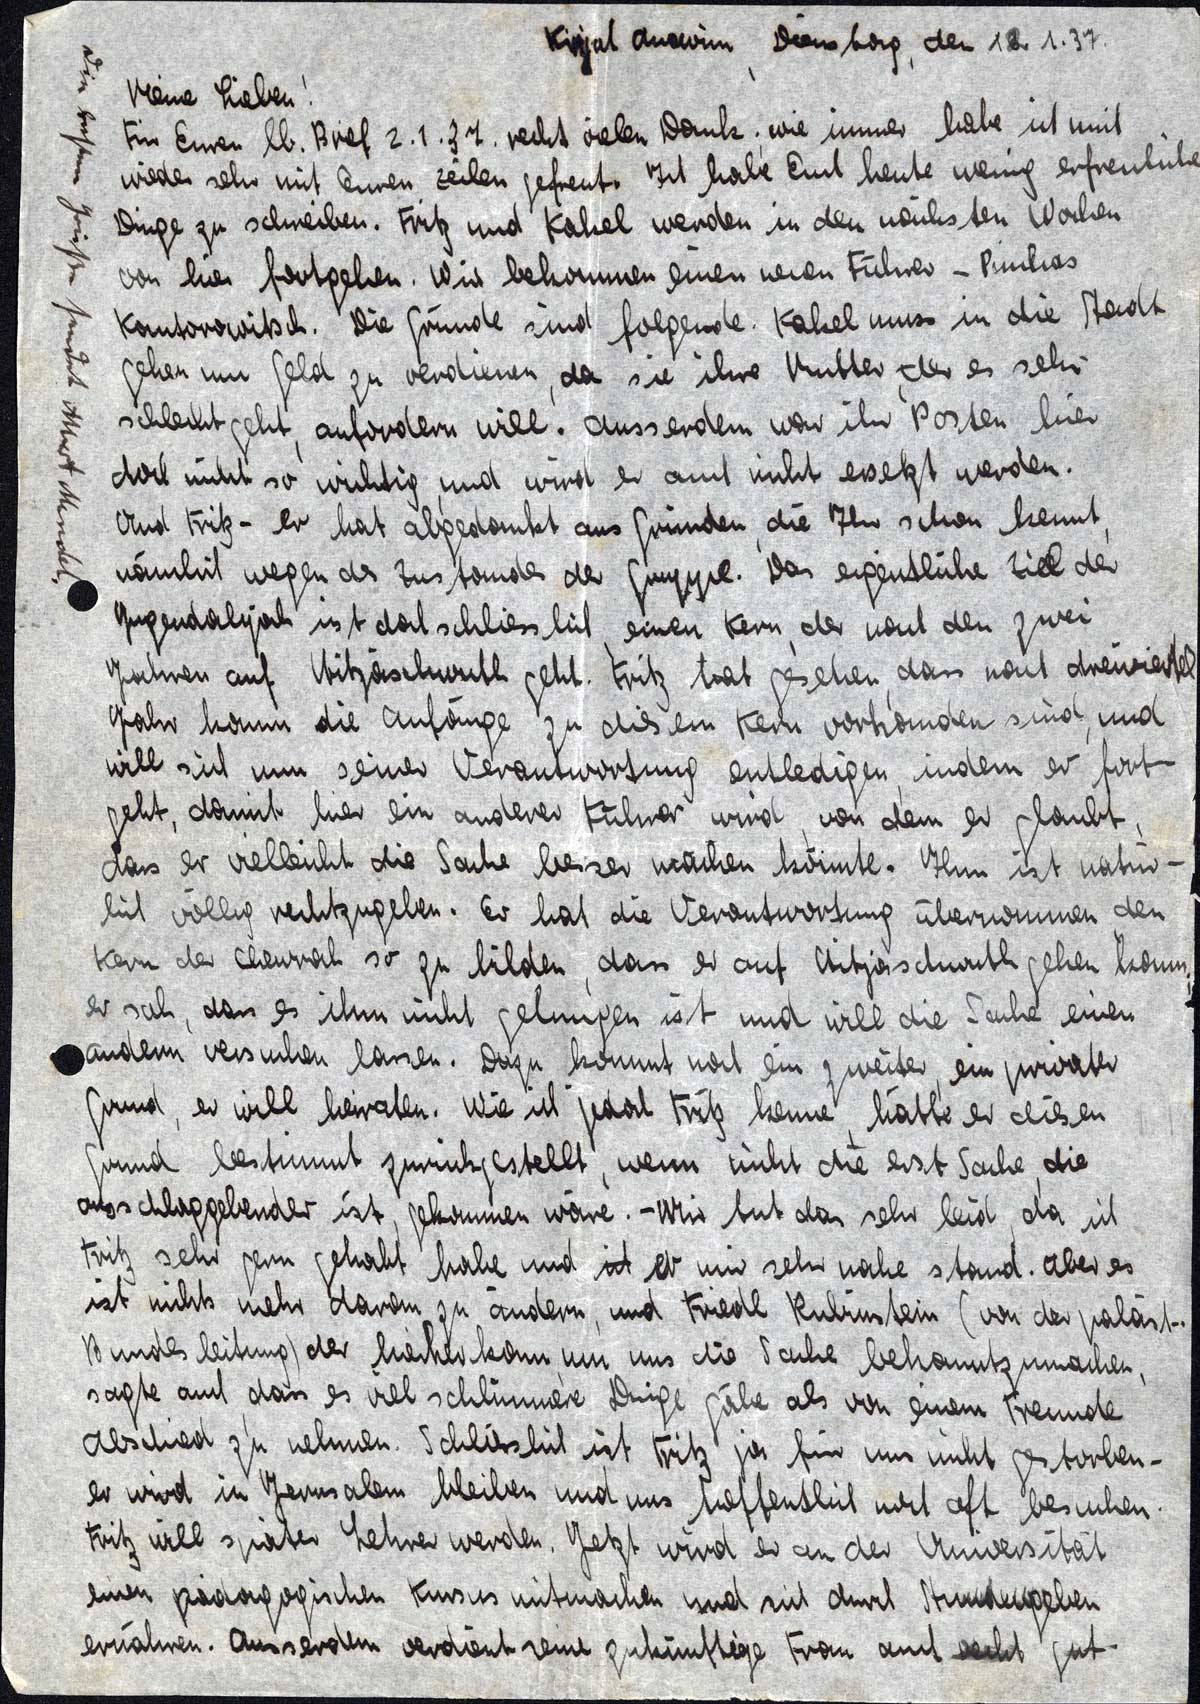 Kirjat Anawim, Dienstag, den 12. 1. 37.
Meine Lieben!
Für Euren lb. Brief 2.1.37. recht vielen Dank; wie immer habe ich mich
wieder sehr mit Euren Zeilen gefreut. Ich habe Euch heute wenig erfreuliche
Dinge zu schreiben. Fritz und Rahel werden in den nächsten Wochen
von hier fortgehen. Wir bekommen einen neuen Führer – Pinchas
Kantorowitsch. Die Gründe sind folgende. Rahel muss in die Stadt
gehen um Geld zu verdienen, da sie ihre Mutter, der es sehr
schlecht geht, anfordern will. Ausserdem war ihr Posten hier
doch nicht so wichtig und wird er auch nicht ersetzt werden.
Und Fritz – er hat abgedankt aus Gründen, die Ihr schon kennt,
nämlich wegen des Zustandes der Gruppe. Das eigentliche Ziel der
Jugendalijah ist doch schliesslich, einen Kern, der nach den zwei
Jahren auf Hitjaschwuth geht. Fritz hat gesehen, dass nach dreiviertel
Jahr kaum die Anfänge zu diesem Kern vorhanden sind, und
will sich nun seiner Verantwortung entledigen, indem er fort-
geht, damit hier ein anderer Führer wird, von dem er glaubt,
dass er vielleicht die Sache besser machen könnte. Ihm ist natür-
lich völlig rechtzugeben. Er hat die Verantwortung übernommen, den
Kern der Chewrah so zu bilden, dass er auf Hitjaschwuth gehen kann,
er sah, dass es ihm nicht gelungen ist und will die Sache einen
andern versuchen lassen. Dazu kommt noch ein zweiter, ein privater
Grund, er will heiraten. Wie ich jedoch Fritz kenne, hätte er diesen
Grund bestimmt zurückgestellt, wenn nicht die erst Sache, die
ausschlaggebender ist, gekommen wäre. – Mir tut das sehr leid, da ich
Fritz sehr gern gehabt habe und er mir sehr nahe stand. Aber es
ist nichts mehr daran zu ändern, und Friedl Rubinstein (von der paläst.
Bundesleitung) der hierher kam um uns die Sache bekanntzumachen,
sagte auch dass es viel schlimmere Dinge gäbe als von einem Freunde
Abschied zu nehmen. Schliesslich ist Fritz ja für uns nicht gestorben –
er wird in Jerusalem bleiben und uns hoffentlich noch oft besuchen.
Fritz will später Lehrer werden. Jetzt wird er an der Universität
einen pädagogischen Kursus mitmachen und sich durch Stundengeben
ernähren. Ausserdem verdient seine zukünftige Frau auch recht gut.
Die besten Grüsse sendet Albert Mendel.